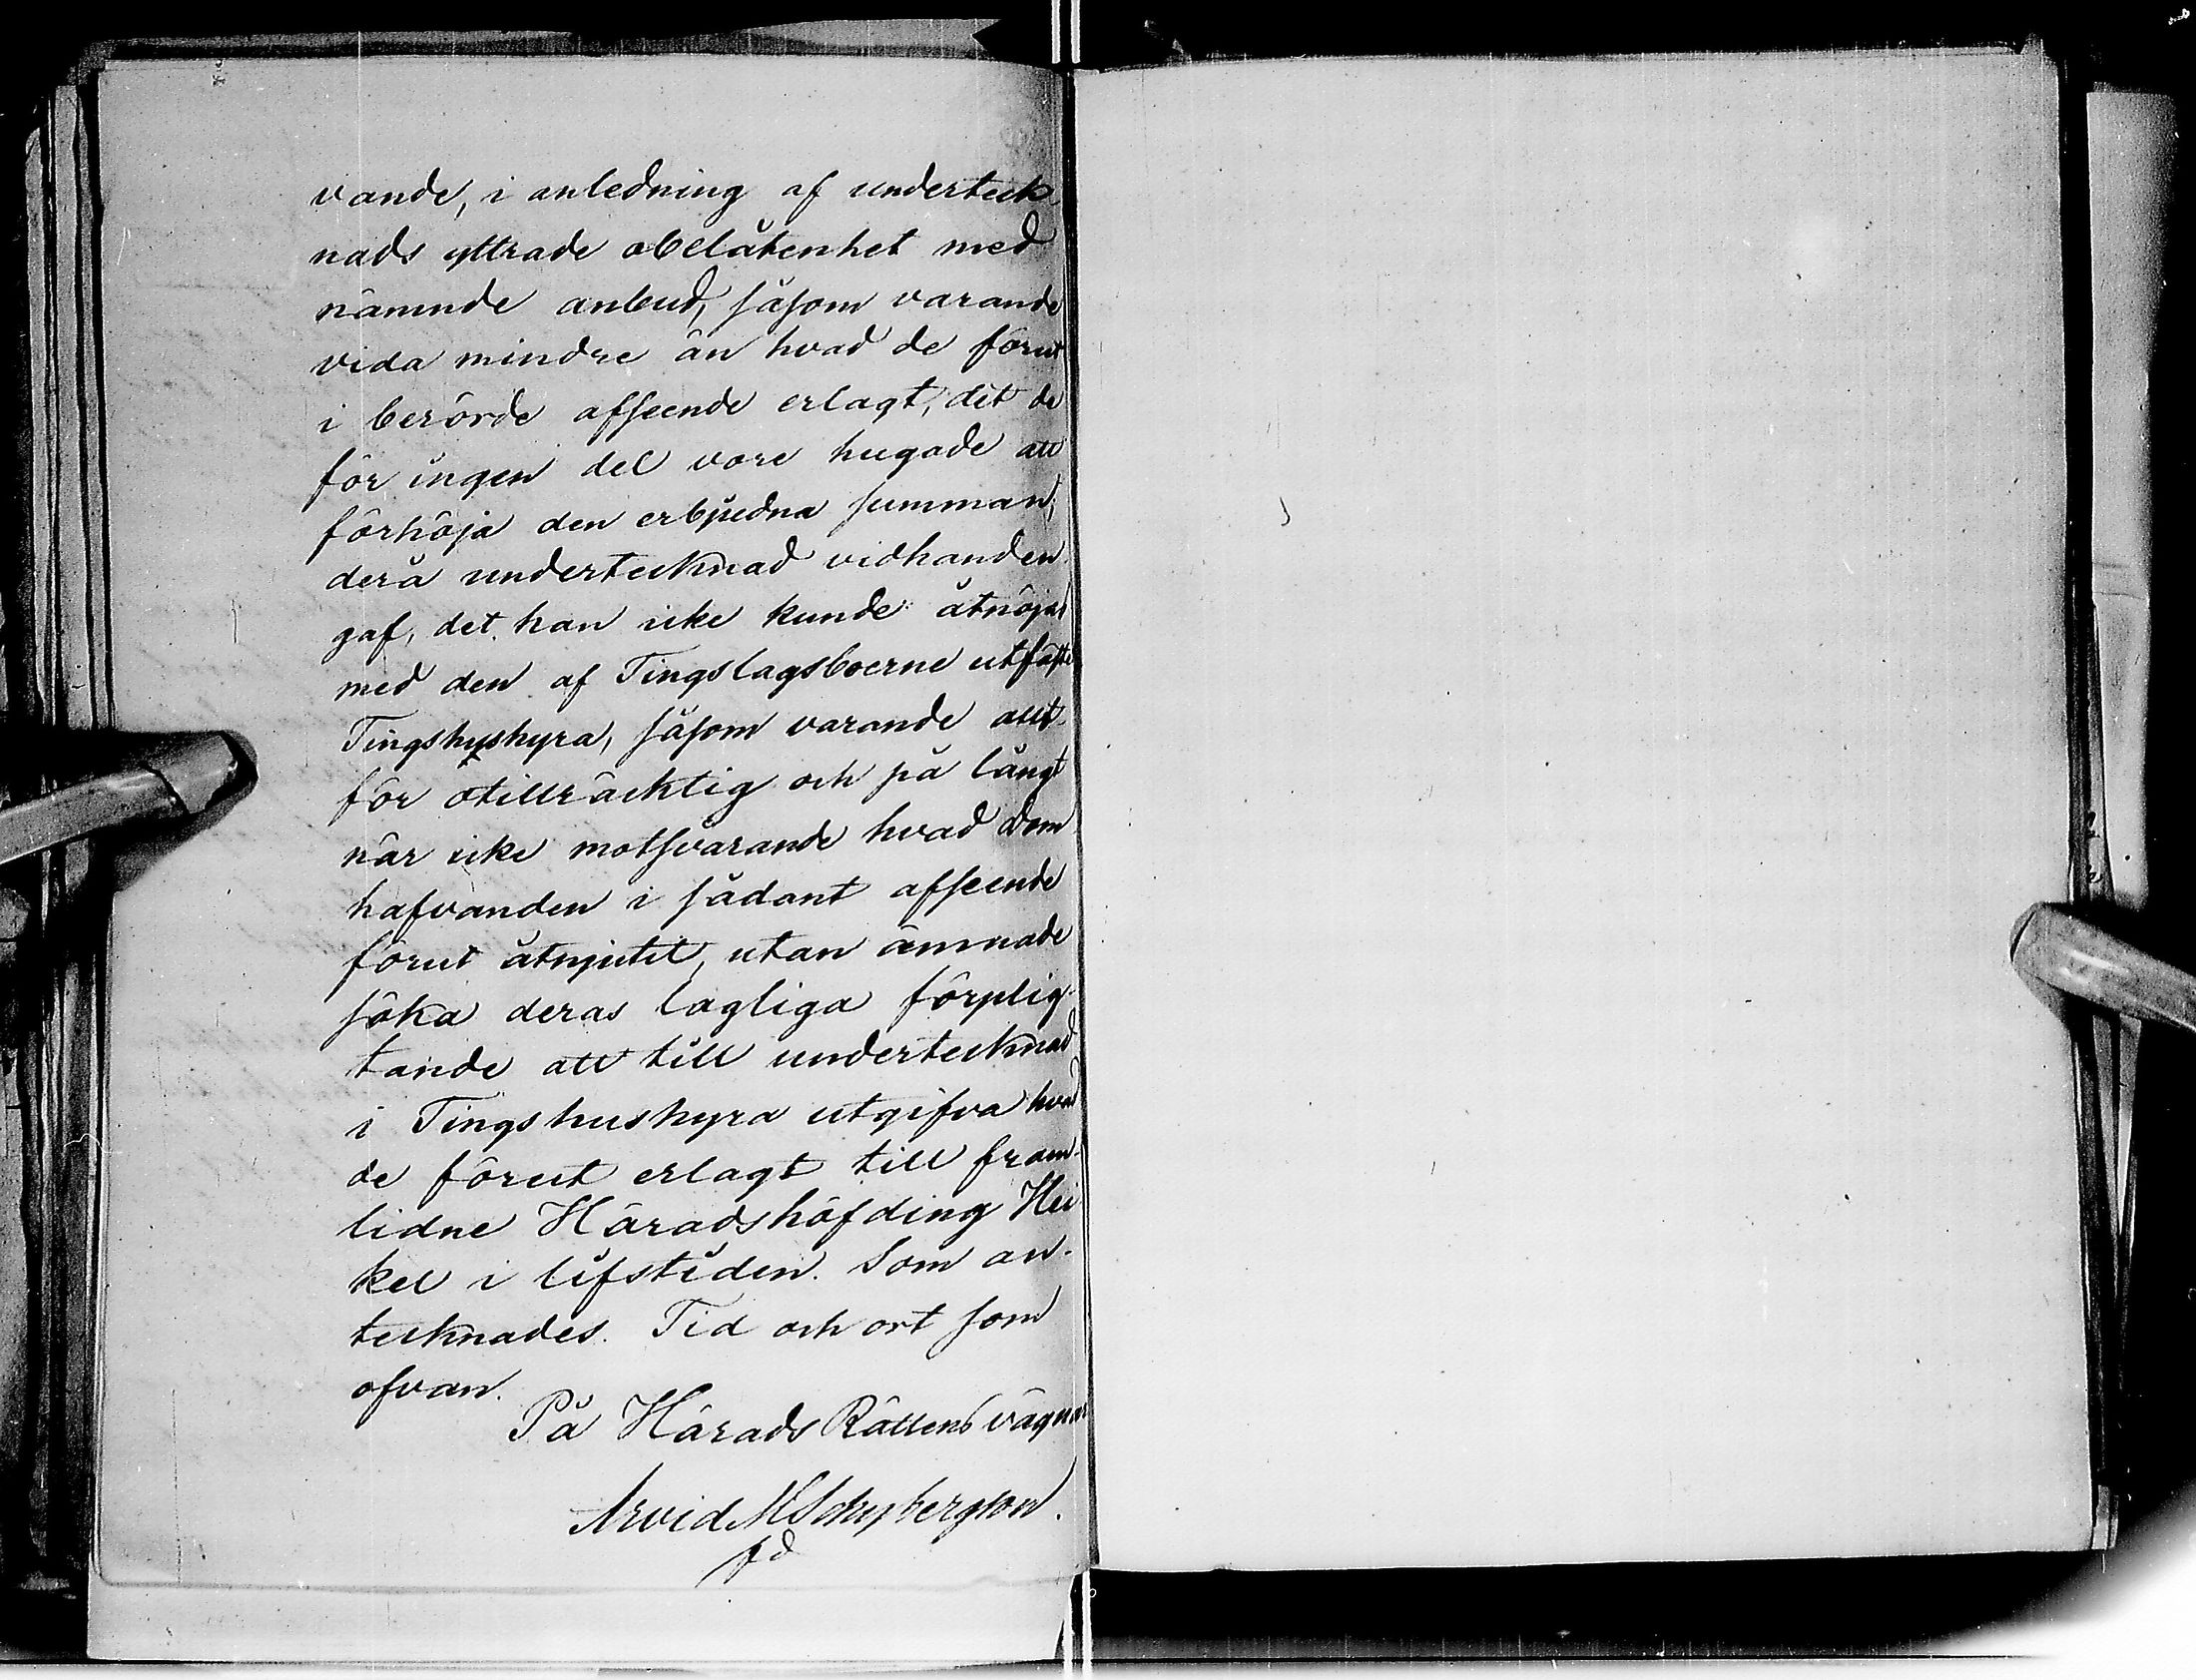 vande, i anledning af underteck-
nads yttrade obelåtenhet med
nämnde anbud, såsom varande
vida mindre än hvad de förut
i berörde afseende erlagt, det de
för ingen del vore hugade att
förhöja den erbjudna summan;
derå undertecknad vidhanden
gaf, det han icke kunde åtnöjas
med den af Tingslagsboerne utfäste
Tingshushyra, såsom varande allt
för otillräcklig och på långt
när icke motsvarande hvad dom
hafvanden i sådant afseende
förut åtnjutit, utan ämnade
söka deras lagliga förplig-
tande att till undertecknad
i Tingshushyra utgifva hvad
de förut erlagt till fram-
lidne Häradshöfding Hei
kel i lifstiden. Som an-
tecknades. Tid och ort som
ofvan.
På Härads Rättens vägnar
Arvid M Schybergson.
fd